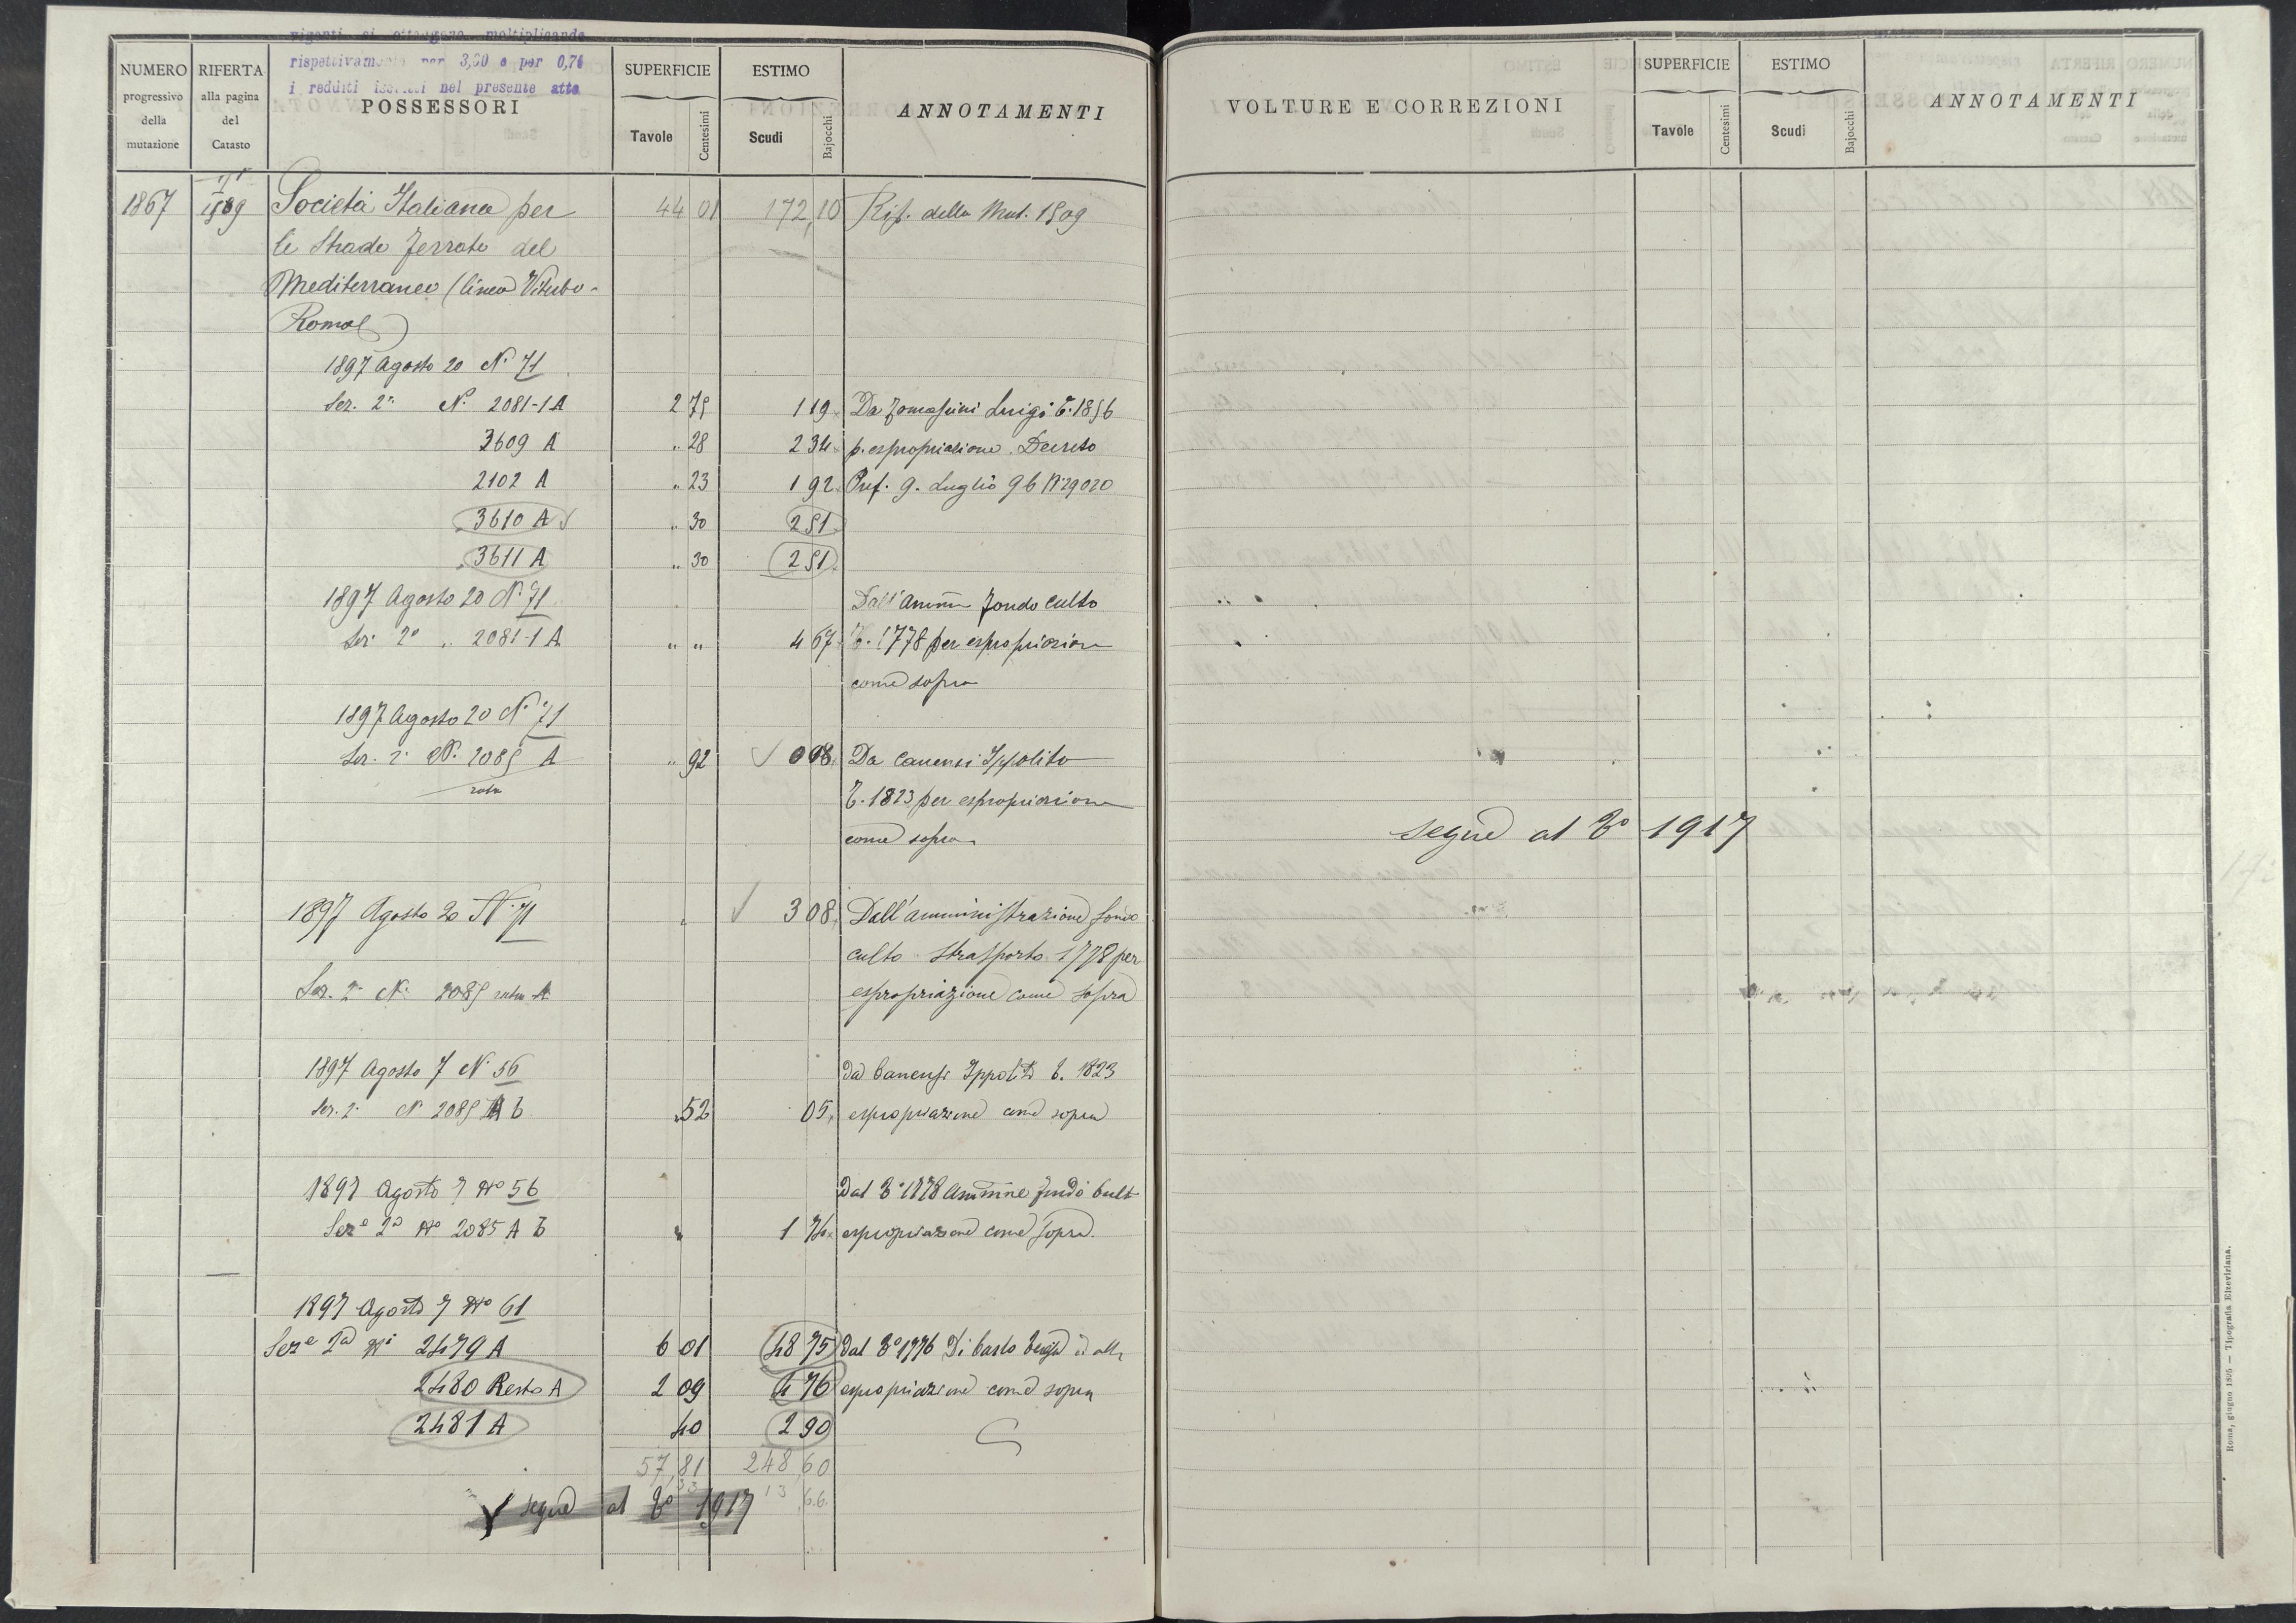 rispettivamente per 3,00 e per 0,74
i redditi iscritti nel presente atto
NUMERO progressivo della mutazione
RIFERTA alla pagina del Catasto
POSSESSORI
SUPERFICIE
Tavole Centesimi
ESTIMO
Scudi Bajocchi
ANNOTAMENTI
1867 Società Italiana per 44 01 172,10 Rif. della Mut. 1509
le Strade Ferrate del
Mediterraneo (linea Viterbo-
Roma)
1897 Agosto 20 N. 71
Ser. 2ª N. 2081-1A 2 75 1 19 Da Tomassini Luigi T. 1856
3609 A " 28 2 34 p. espropriazione. Decreto
2102 A " 23 1 92 Pref. 9. Luglio 96 N 29020
3610 A " 30 2 51
3611 A " 30 2 51
1897 Agosto 20 N. 71 Dall'Ammne Fondo Culto
Ser. 2ª " 2081-1A " " 4 67 T. 1778 per espropriazione
come sopra
1897 Agosto 20 N. 71
Ser. 2ª N. 2085 A " 92 Da Canensi Ippolito
rata
T. 1823 per espropriazione
come sopra
1897 Agosto 20 N. 71 3 08 Dall'amministrazione fondo
culto trasporto 1778 per
Ser. 2ª N. 2085 rata A espropriazione come sopra
1897 Agosto 7 N. 56 Da Canensi Ippolito T. 1823
Ser. 2ª N 2085 A b " 52 05 espropriazione come sopra
1897 Agosto 7 No 56 Dal To 1778 Ammine Fondo Culto
Sere 2a No 2085 A b " 1 74 espropriazione come sopra.
1897 Agosto 7 No 61
Sere 2a Ni 2479 A 6 01 48 75 Dal To 1776 Di Carlo
2480 Resto A 2 09 4 76 espropriazione come sopra
2481 A 40 2 90
57,81 248 60
33 13 66
segue al To 1917
VOLTURE E CORREZIONI
SUPERFICIE
Tavole Centesimi
ESTIMO
Scudi Bajocchi
ANNOTAMENTI
segue al To 1917
Roma, giugno 1895 — Tipografia Elzeviriana.